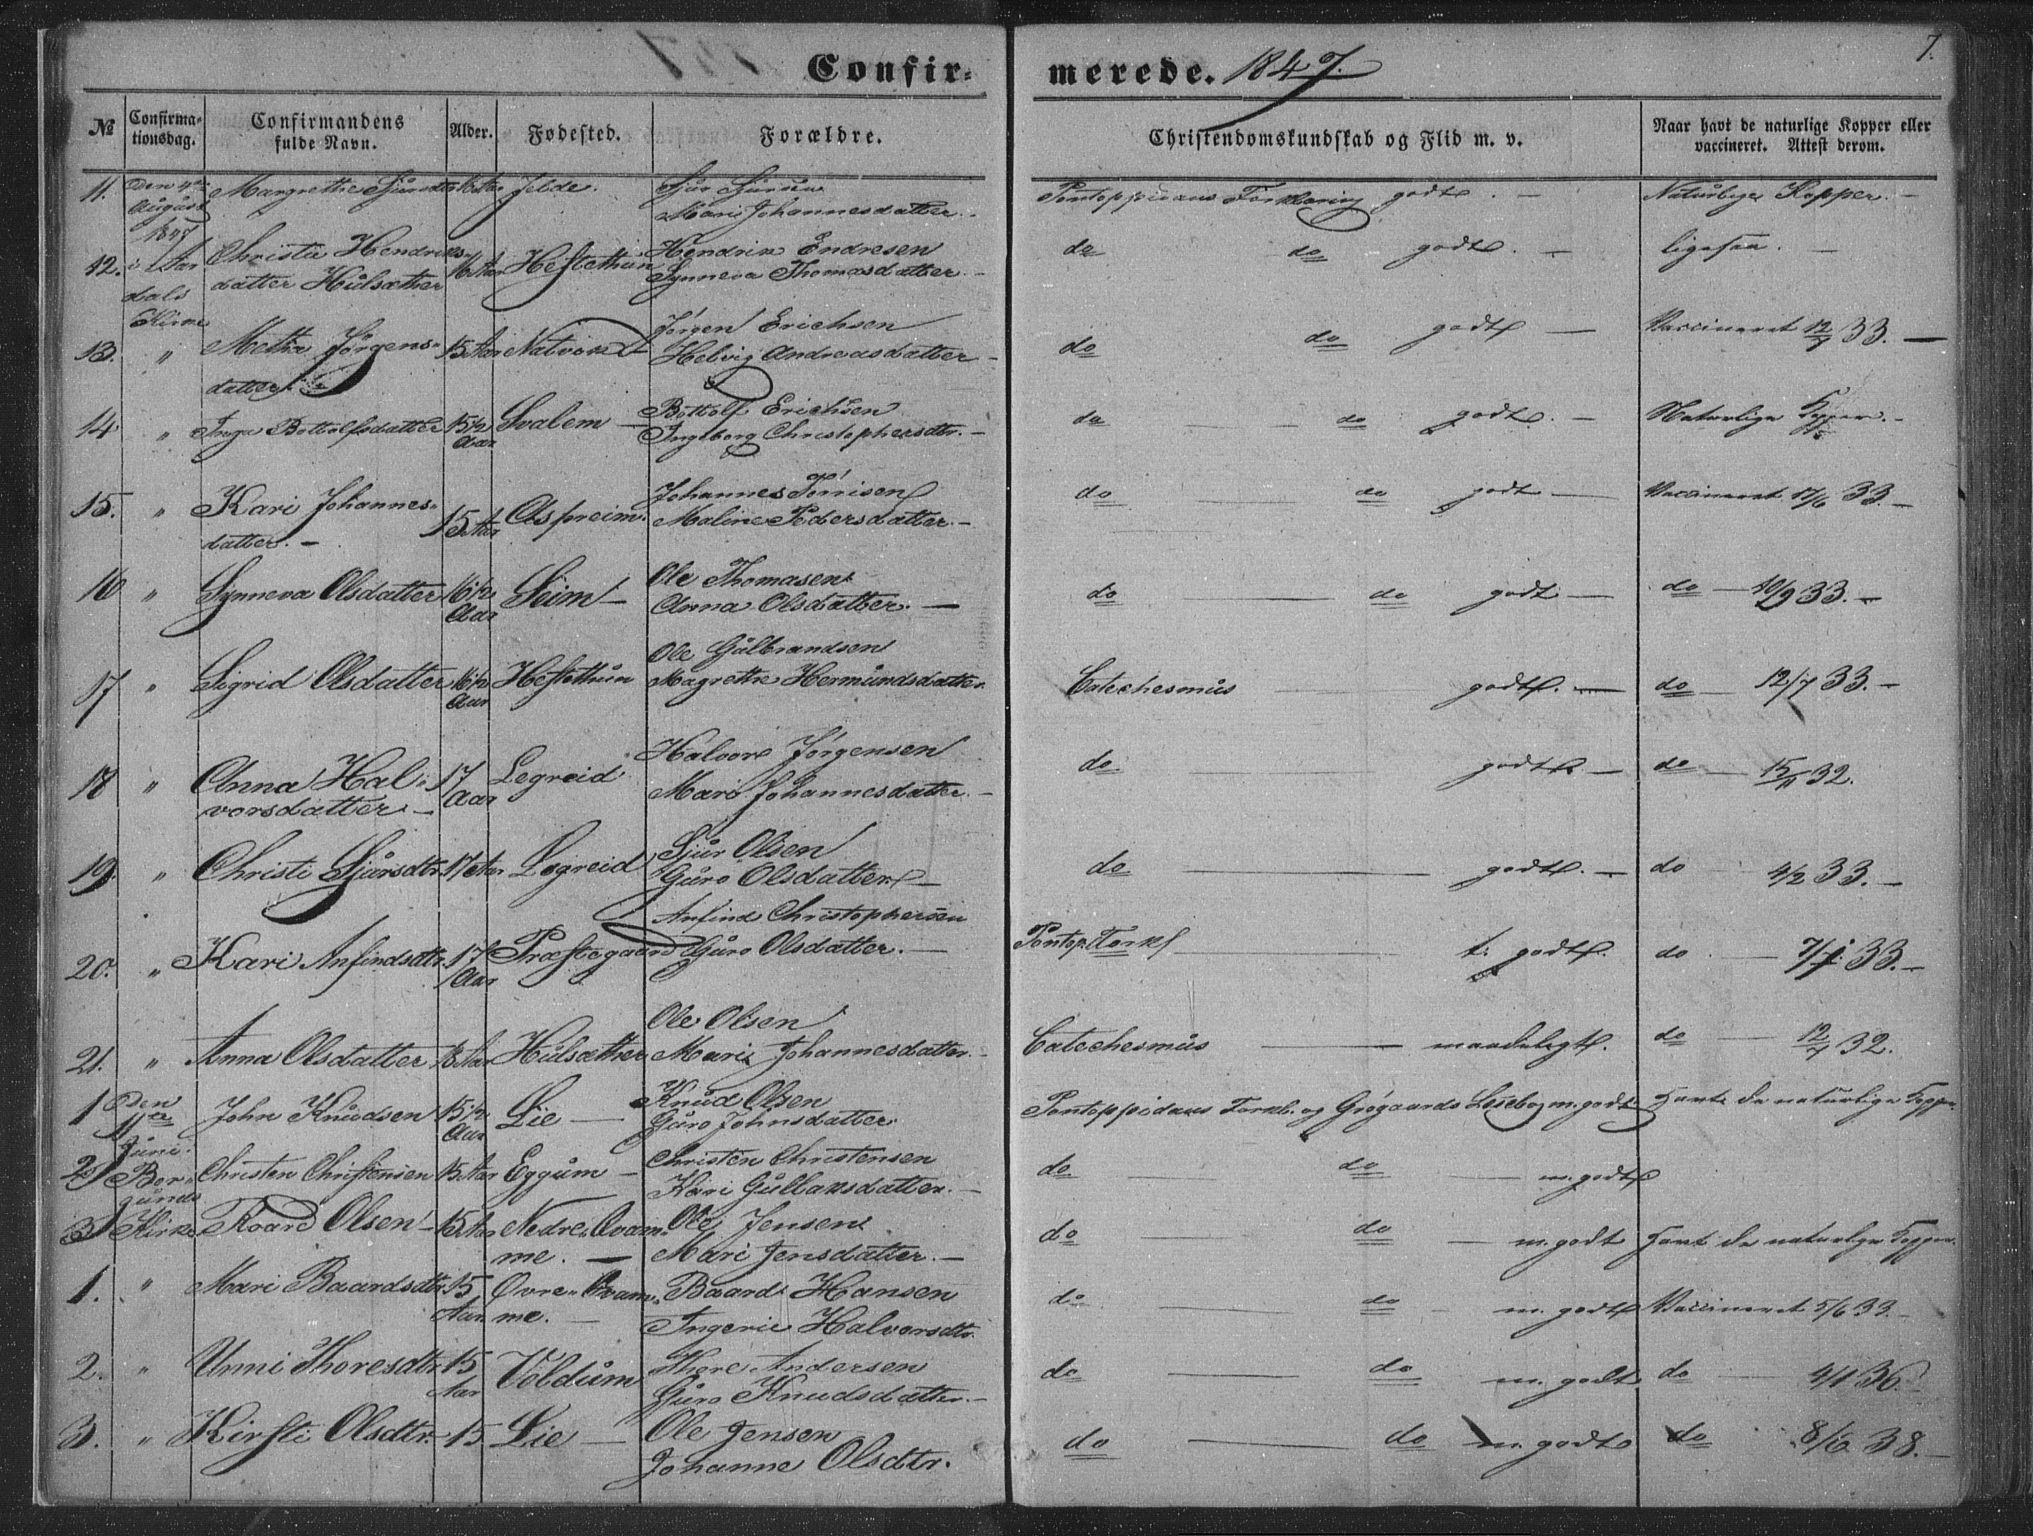 7.
Confirmerede. 1847.
No
Confirmationsdag.
Confirmandens fulde Navn.
Alder.
Fødested.
Forældre.
Christendomskundskab og Flid m. v.
Naar havt de naturlige Kopper eller vaccineret. Attest derom.
11. Den 4de August 1847 Margrethe Sjursdtr Jelde. Sjur Sjursen Pontoppidans Forklaring godt. — Naturlige Kopper. —
Mari Johannesdatter.
12. i Aardals Kirke Christie Hendriksdatter Hulsæther 16 Aar Hestethun Hendrik Endresen do do godt. — ligesaa. —
Synneva Thomasdatter. —
13. " Metha Jørgensdatter. 15 Aar Natvik Jørgen Erichsen do do godt — Vaccineret 12/7 33. —
Helvig Andreasdatter —
14. " Inga Bottolfsdatter 15 1/2 Aar Svalem — Bottolf Erichsen do do godt. — Naturlige Kopper. —
Ingeborg Christophersdtr. —
15. " Kari Johannesdatter. — 15 Aar Aspreim Johannes Tørrisen do — do godt — Vaccineret 17/6 33. —
Maline Pedersdatter. —
16 " Synneva Olsdatter 16 1/2 Aar Seim — Ole Thomasen do — do godt — do — 10/9 33. —
Anna Olsdatter. —
17 " Sigrid Olsdatter 16 1/2 Aar Hestethun Ole Gulbrandsen Catechesmus — godt. — do — 12/7 33. —
Magrethe Hermundsdatter
18 " Anna Halvorsdatter. — 17 Aar Legreid Halvor Jørgensen do — godt. — do — 15/11 32.
Mari Johannesdatter. —
19. " Christi Sjursdtr. 17 Aar Legreid Sjur Olsen do — godt. — do 4/2 33. —
Guro Olsdatter —
20. " Kari Anfindsdtr. 17 Aar Præstegaard Anfind Christophersen Pontop. Forkl — t. godt. do — 7/1 33. —
Guro Olsdatter. —
21. " Anna Olsdatter 18 Aar Hulsæther Ole Olsen Catechesmus — maadeligt. do — 12/7 32.
Mari Johannesdatter. —
1 Den 11te Juni John Knudsen 15 1/2 Aar Lie — Knud Olsen Pontoppidans Forkl. og Grøgaards Lesebog m. godt Havt de naturlige Kopper.
Guro Johnsdatter
2 Borgunds Christen Christensen 15 Aar Eggum — Christen Christensen do do — m. godt
Kari Gullaksdatter. —
3 Kirke Roard Olsen 15 Aar Nedre Qvamme. — Ole Jensen do — do — m. godt Havt de naturlige Kopper.
Mari Jensdatter. —
1. " Mari Baardsdtr. 15 Aar Øvre Qvamme. — Baard Hansen do — do — m. godt Vaccineret 5/6 33. —
Ingerie Halvorsdtr.
2. " Unni Thoresdtr. 15 Aar Voldum Thore Andersen do — do — m. godt do — 4/1 36.
Guro Knudsdatter. —
3. " Kirsti Olsdtr. 15 Lie — Ole Jensen do — do m. godt do 8/6 38. —
Johanne Olsdtr.